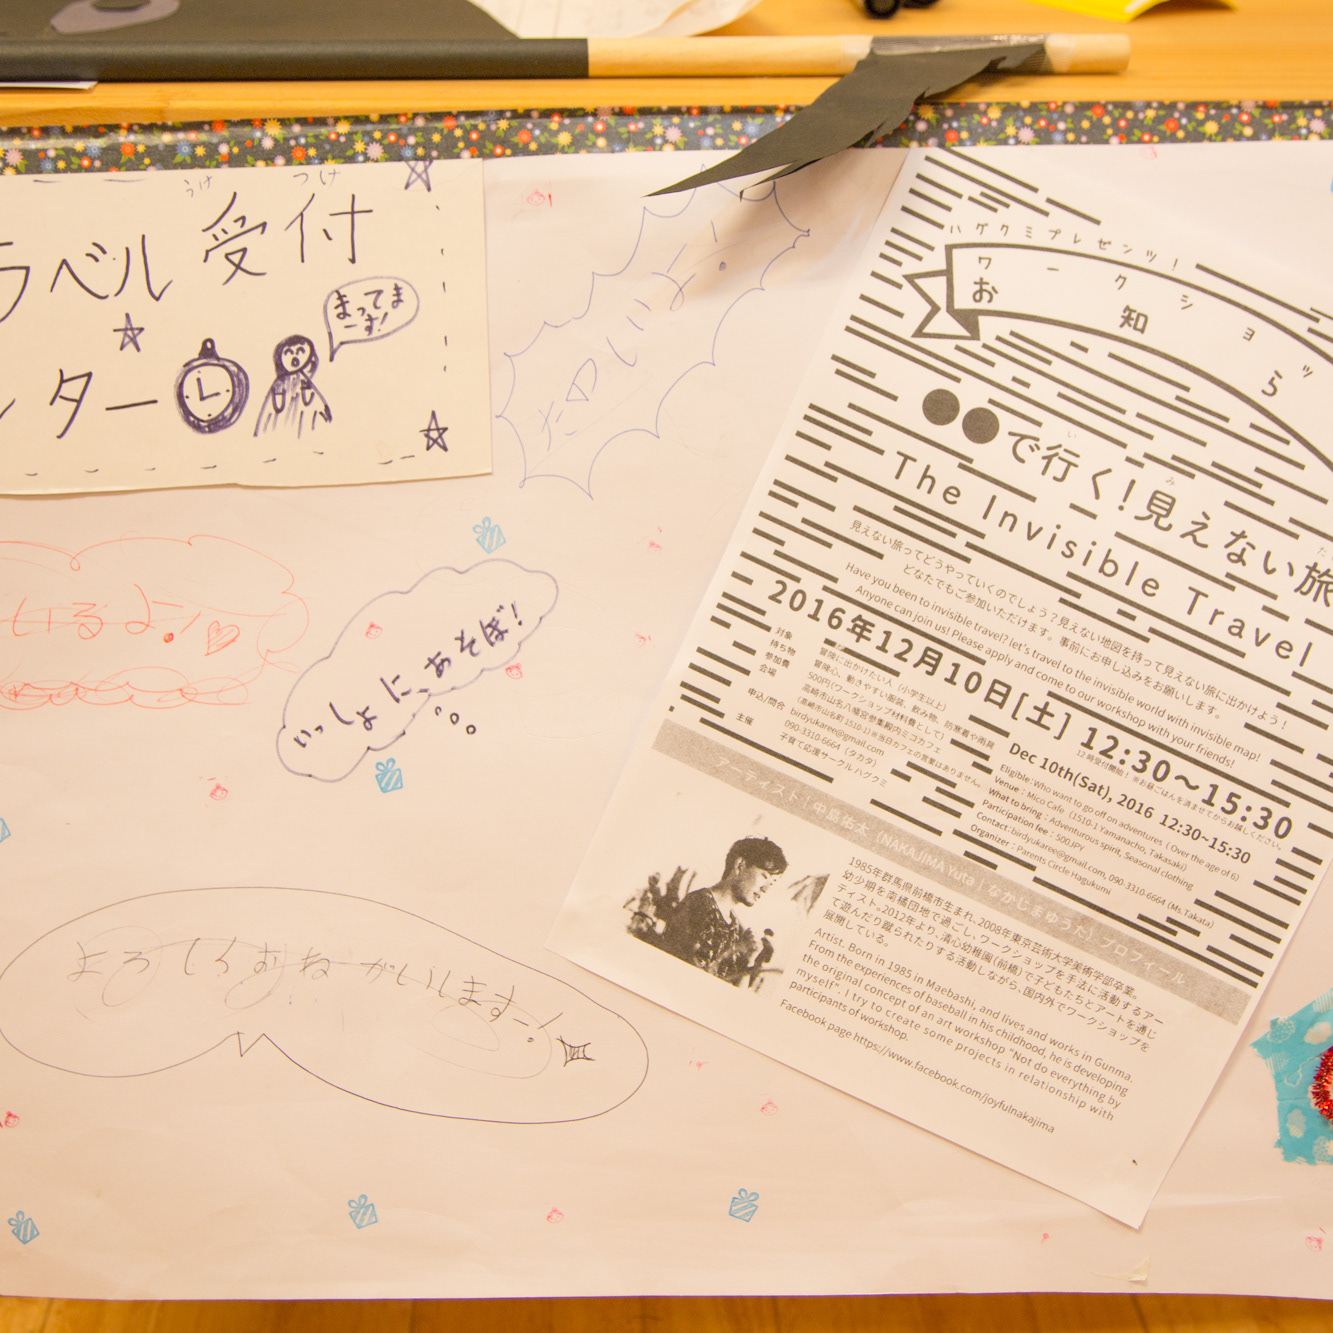 うけ つけ
ラベル 受付
ンター
まってま
ーす!
たのしいよ!
いるよ!
いっしょに、あそぼ!
よろしくおねがいします-!
ハグクミプレゼンツ!
ワークショッ
お知ら
●●で行く!見えない旅
The Invisible Travel
見えない旅ってどうやっていくのでしょう?見えない地図を持って見えない旅に出かけよう!
どなたでもご参加いただけます。事前にお申し込みをお願いします。
Have you been to invisible travel? let's travel to the invisible world with invisible map!
Anyone can join us! Please apply and come to our workshop with your friends!
2016年12月10日[土] 12:30〜15:30
12時受付開始! ※お昼ごはんを済ませてからお越しください。
対象 冒険に出かけたい人(小学生以上)
持ち物 冒険心、動きやすい服装、飲み物、防寒着や雨具
参加費 500円(ワークショップ材料費として)
会場 高崎市山名八幡宮参集殿内ミコカフェ
(高崎市山名町1510-1)※当日カフェの営業はありません。
申込/問合 birdyukaree@gmail.com
090-3310-6664(タカタ)
主催 子育て応援サークル ハグクミ
Dec 10th(Sat), 2016 12:30~15:30
Eligible:Who want to go off on adventures ( Over the age of 6)
Venue : Mico Cafe (1510-1 Yamanacho, Takasaki)
What to bring : Adventurous spirit, Seasonal clothing
Participation fee : 500JPY
Contact:birdyukaree@gmail.com, 090-3310-6664 (Ms.Takata)
Organizer : Parents Circle Hagukumi
アーティスト|中島佑太(NAKAJIMA Yuta|なかじまゆうた)プロフィール
1985年群馬県前橋市生まれ、2008年東京芸術大学美術学部卒業。
幼少期を南橘団地で過ごし、ワークショップを手法に活動するアー
ティスト。2012年より、清心幼稚園(前橋)で子どもたちとアートを通じ
て遊んだり蹴られたりする活動しながら、国内外でワークショップを
展開している。
Artist. Born in 1985 in Maebashi, and lives and works in Gunma.
From the experiences of baseball in his childhood, he is developing
the original concept of an art workshop "Not do everything by
myself". I try to create some projects in relationship with
participants of workshop.
Facebook page https://www.facebook.com/joyfulnakajima